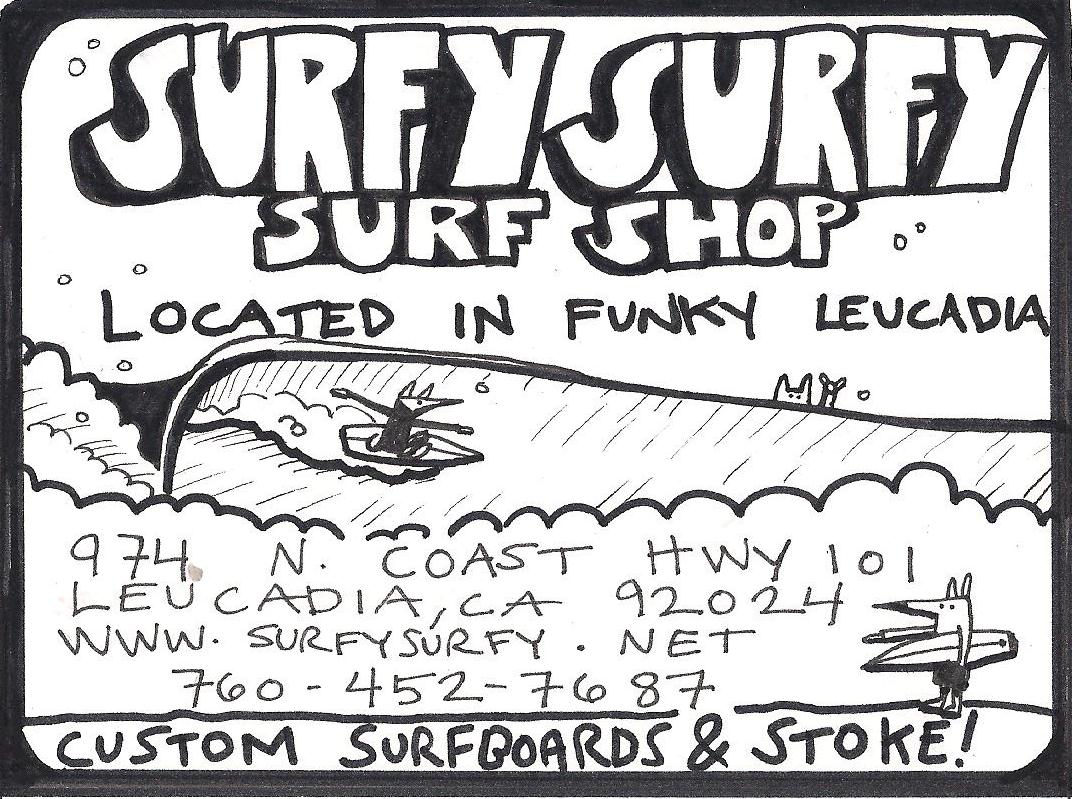 SURFY SURFY
SURF SHOP
LOCATED IN FUNKY LEUCADIA
974 N. COAST HWY 101
LEUCADIA, CA 92024
WWW.SURFYSURFY.NET
760-452-7687
CUSTOM SURFBOARDS & STOKE!